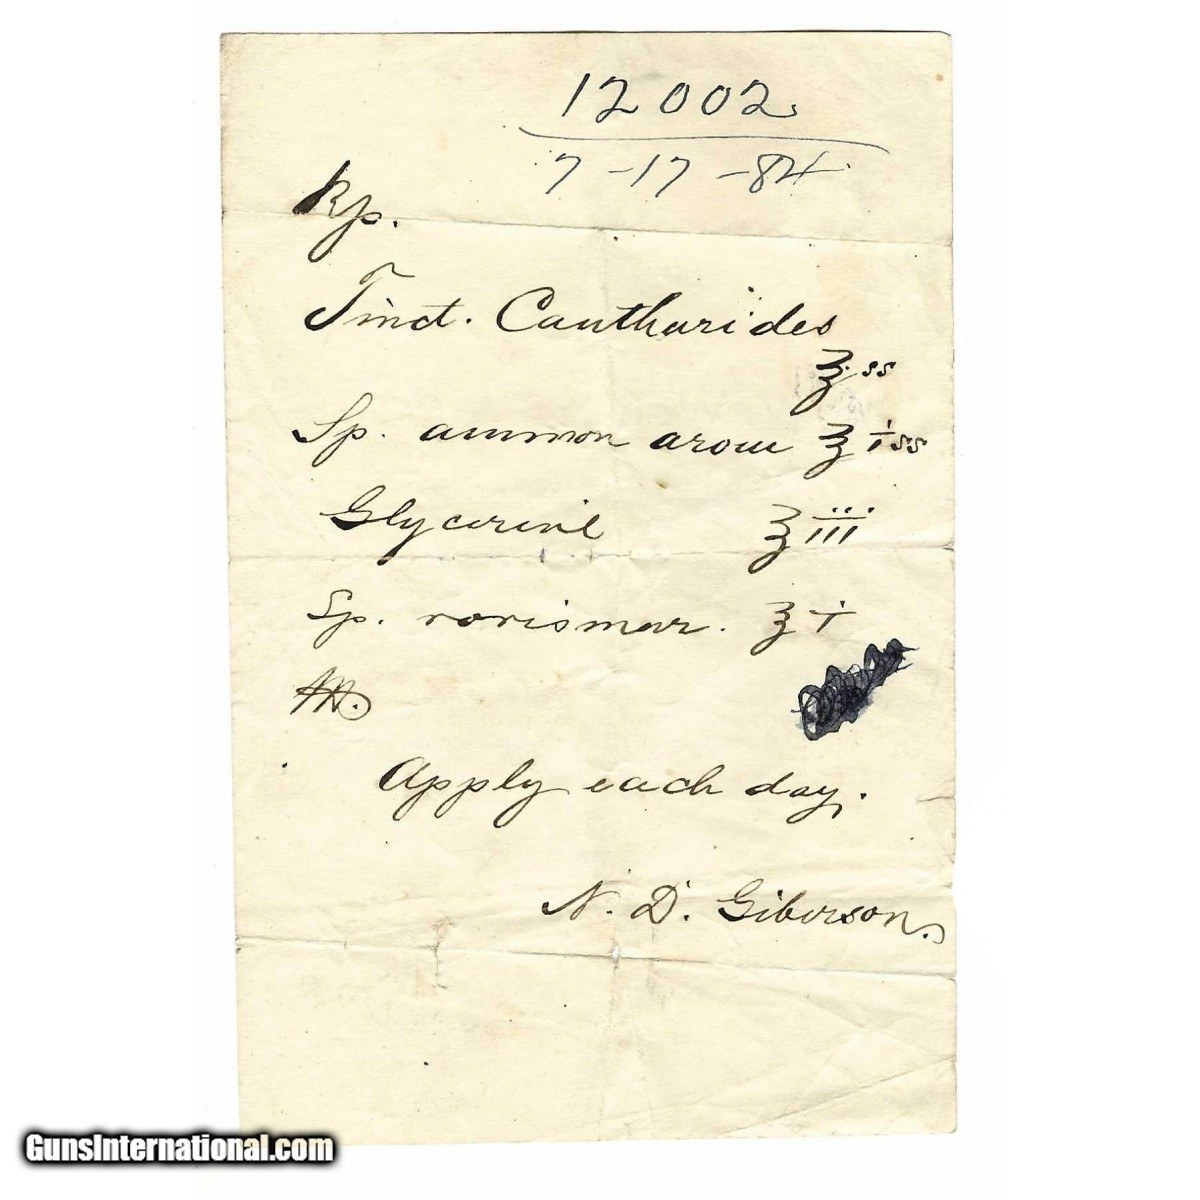 12002
7-17-84
Rp.
Tinct. Cantharides
ʒss
Sp. ammon arom ʒiss
Glycerine ʒiii
Sp. rorismar. ʒi
M.
Apply each day.
N. D. Giberson.
GunsInternational.com